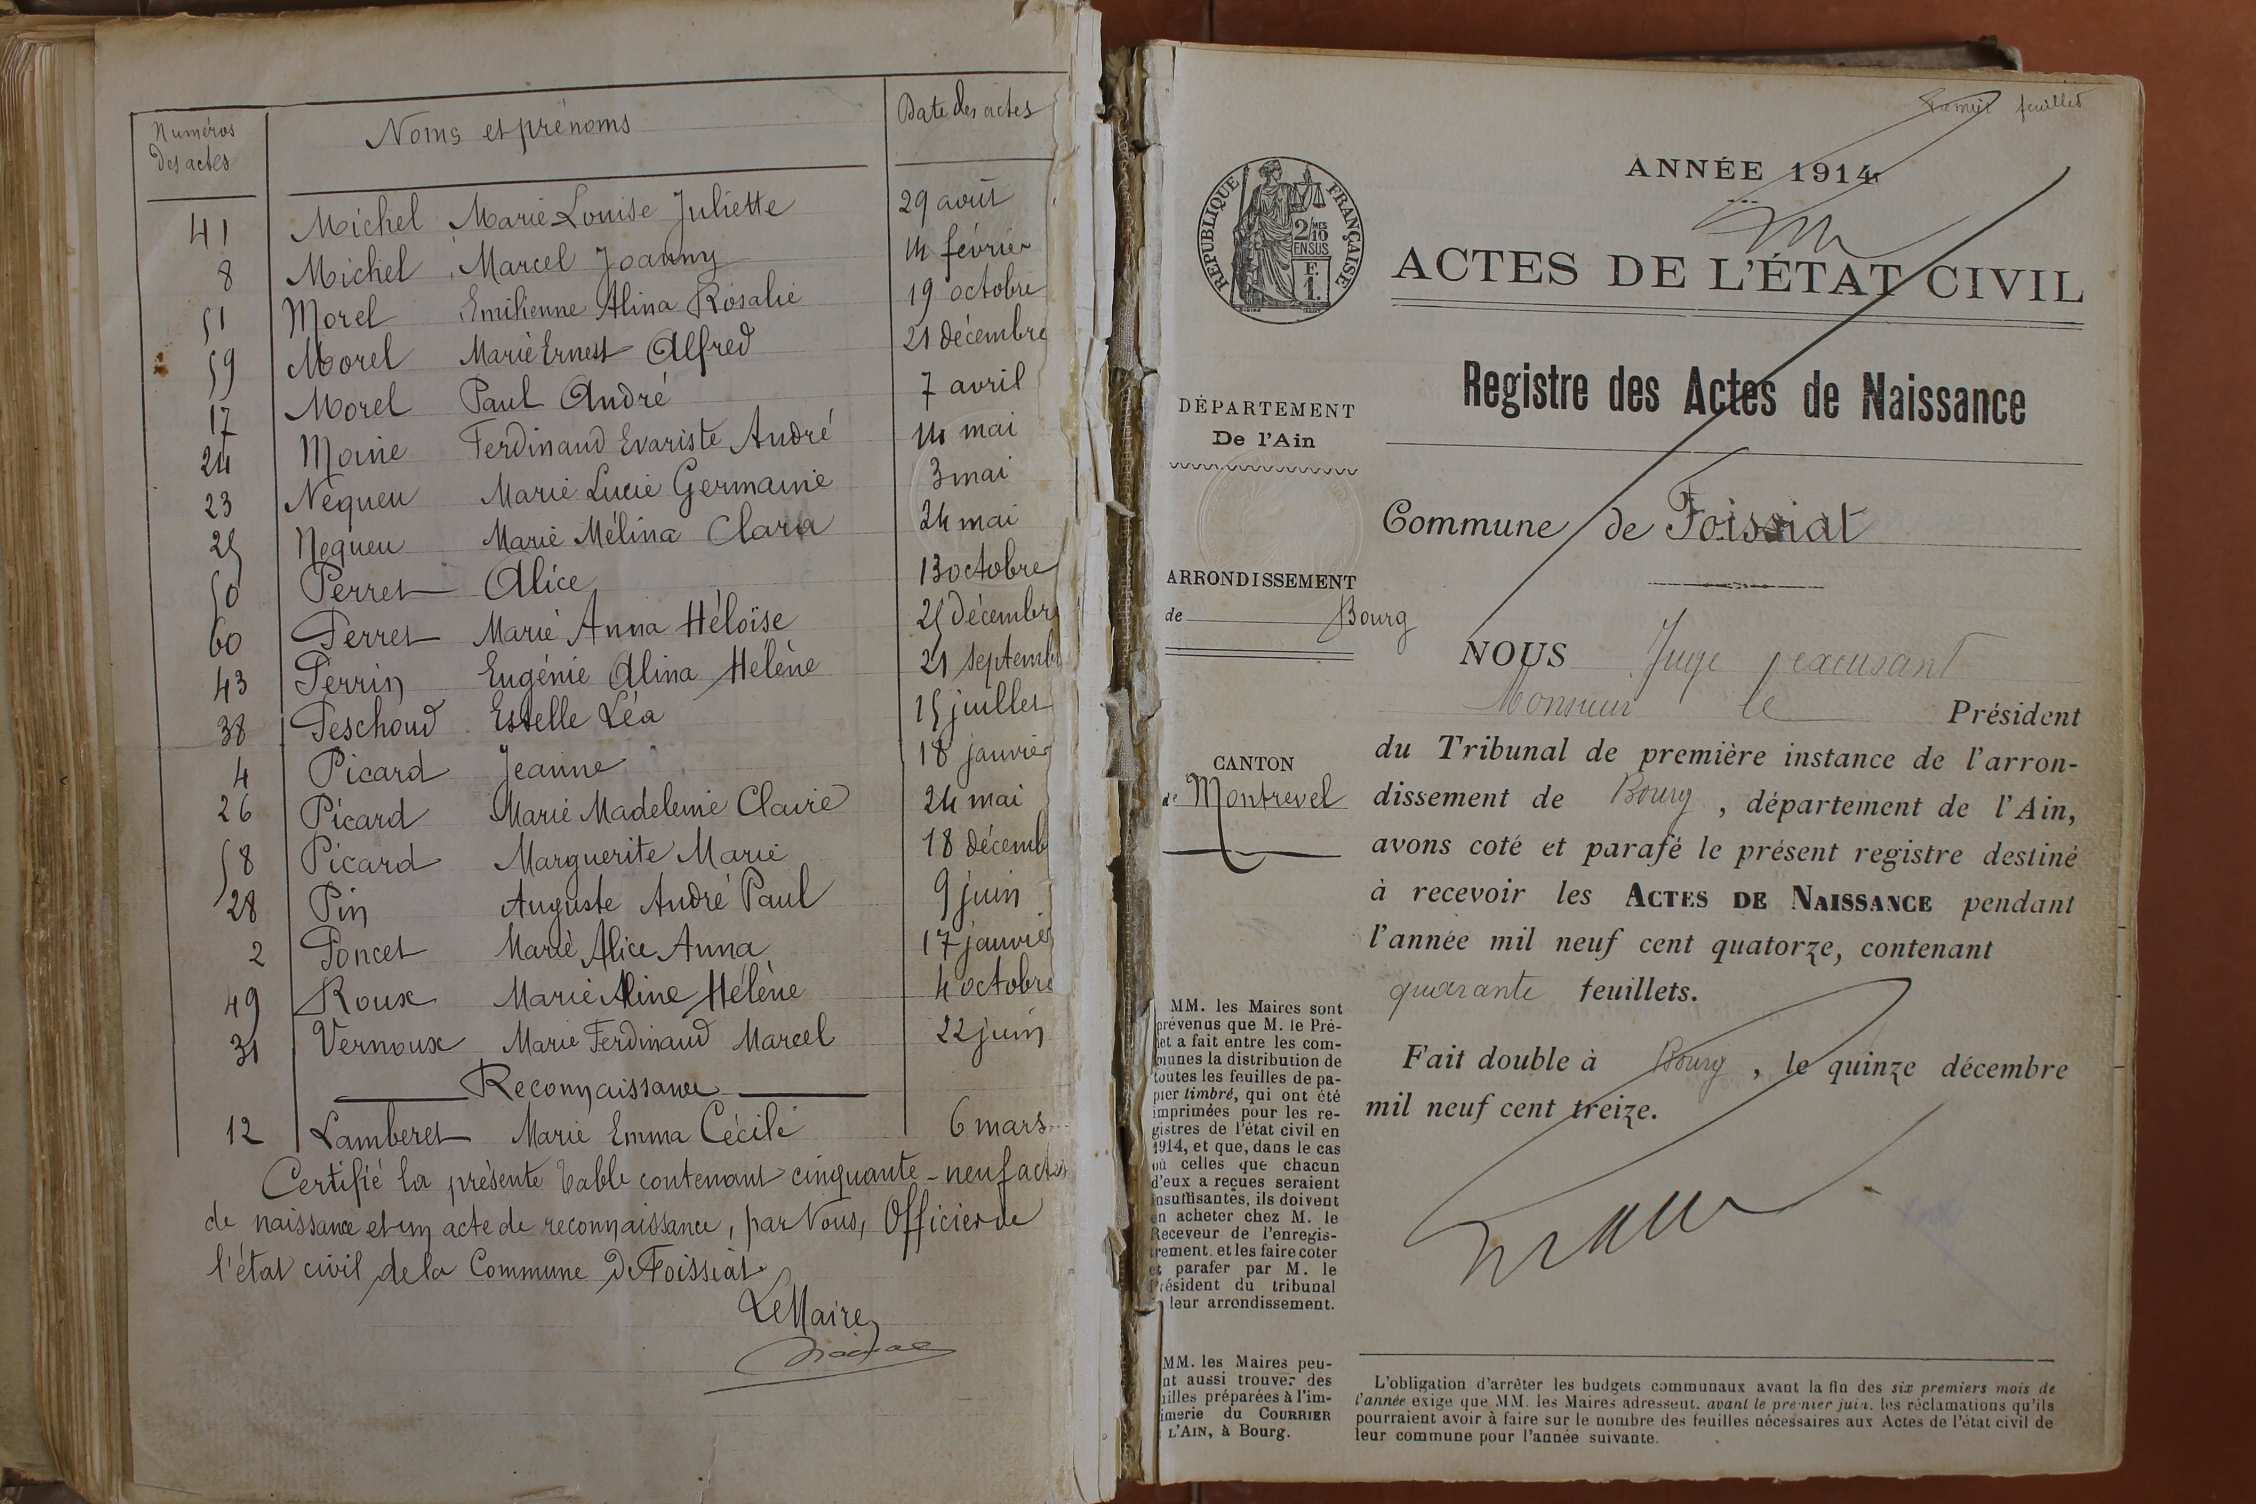 Numéros des actes Noms et prénoms Date des actes
41 Michel Marie Louise Juliette 29 août
8 Michel Marcel Joanny 14 février
51 Morel Emilienne Alina Rosalie 19 octobre
59 Morel Marie Ernest Alfred 21 décembre
17 Morel Paul André 7 avril
24 Moine Ferdinand Evariste André 14 mai
23 Nequeu Marie Lucie Germaine 3 mai
25 Nequeu Marie Mélina Clara 24 mai
50 Perret Alice 13 octobre
60 Perret Marie Anna Héloïse 25 décembre
43 Perrin Eugénie Alina Hélène 21 septemb
38 Peschoud Estelle Léa 15 juillet
4 Picard Jeanne 18 janvier
26 Picard Marie Madeleine Claire 24 mai
58 Picard Marguerite Marie 18 décemb
28 Pin Auguste André Paul 9 juin
2 Poncet Marie Alice Anna 17 janvier
49 Roux Marie Aline Hélène 4 octobre
31 Vernoux Marie Ferdinand Marcel 22 juin
Reconnaissance
12 Lamberet Marie Emma Cécile 6 mars
Certifié la présente table contenant cinquante-neuf actes
de naissance et un acte de reconnaissance, par Nous, Officier de
l'état civil de la Commune de Foissiat.
Le Maire,
feuillet
ANNÉE 1914
RÉPUBLIQUE FRANÇAISE
2/10 MES
EN SUS
F.
1.
ACTES DE L'ÉTAT CIVIL
Registre des Actes de Naissance
DÉPARTEMENT
De l'Ain
Commune de Foissiat
ARRONDISSEMENT
de Bourg
CANTON
de Montrevel
NOUS Juge
Monsieur le Président
du Tribunal de première instance de l'arron-
dissement de Bourg, département de l'Ain,
avons coté et parafé le présent registre destiné
à recevoir les ACTES DE NAISSANCE pendant
l'année mil neuf cent quatorze, contenant
quarante feuillets.
Fait double à Bourg, le quinze décembre
mil neuf cent treize.
MM. les Maires sont
prévenus que M. le Pré-
et a fait entre les com-
munes la distribution de
toutes les feuilles de pa-
pier timbré, qui ont été
imprimées pour les re-
gistres de l'état civil en
1914, et que, dans le cas
où celles que chacun
d'eux a reçues seraient
insuffisantes, ils doivent
en acheter chez M. le
Receveur de l'enregis-
trement et les faire coter
et parafer par M. le
Président du tribunal
leur arrondissement.
MM. les Maires peu-
nt aussi trouver des
illes préparées à l'im-
imerie du COURRIER
L'AIN, à Bourg.
L'obligation d'arrêter les budgets communaux avant la fin des six premiers mois de
l'année exige que MM. les Maires adressent, avant le premier juin, les réclamations qu'ils
pourraient avoir à faire sur le nombre des feuilles nécessaires aux Actes de l'état civil de
leur commune pour l'année suivante.